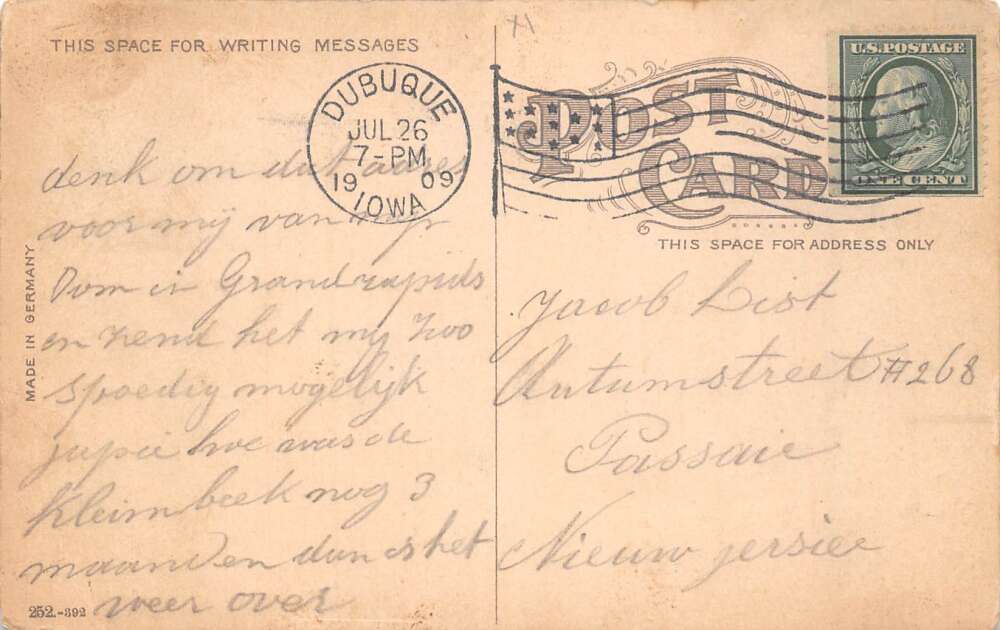 THIS SPACE FOR WRITING MESSAGES
DUBUQUE
JUL 26
7-PM
1909
IOWA
U.S. POSTAGE
ONE CENT
POST
CARD
THIS SPACE FOR ADDRESS ONLY
MADE IN GERMANY
denk om dat adres
voor mij van mijn
Oom in Grandrapids
en zend het mij zoo
spoedig mogelijk
hoe was de
beek nog 3
maanden dan is het
weer over
Jacob List
Autumstreet #268
Passaic
Nieuw jersiee
252.-392
XI